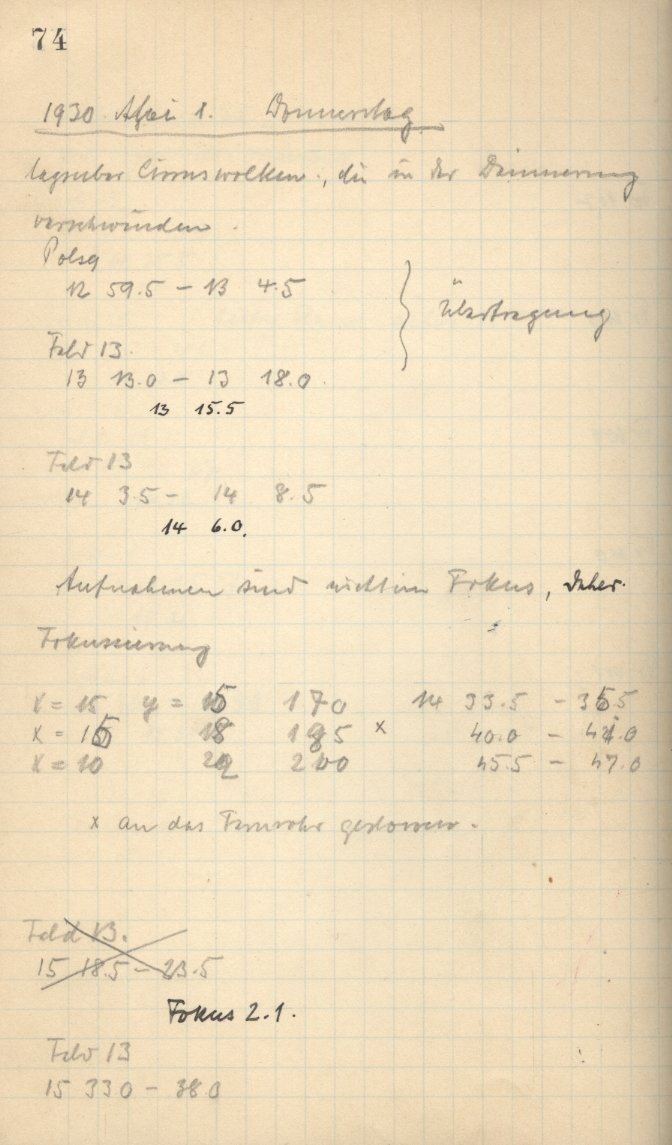 74
1930 Mai 1. Donnerstag
tagsüber Cirruswolken, die in der Dämmerung
verschwinden.
Polsq
12 59.5 – 13 4.5
Übertragung
Feld 13.
13 13.0 – 13 18.0.
13 15.5
Feld 13
14 3.5 – 14 8.5
14 6.0.
Aufnahmen sind nicht im Fokus, daher
Fokussierung
x = 15 y = 15 170 14 33.5 – 35.5
x = 15 18 185 x 40.0 – 41.0
x = 10 20 200 45.5 – 47.0
x an das Fernrohr gestossen.
Feld 13.
15 18.5 – 23.5
Fokus 2.1.
Feld 13
15 33 0 – 38 0